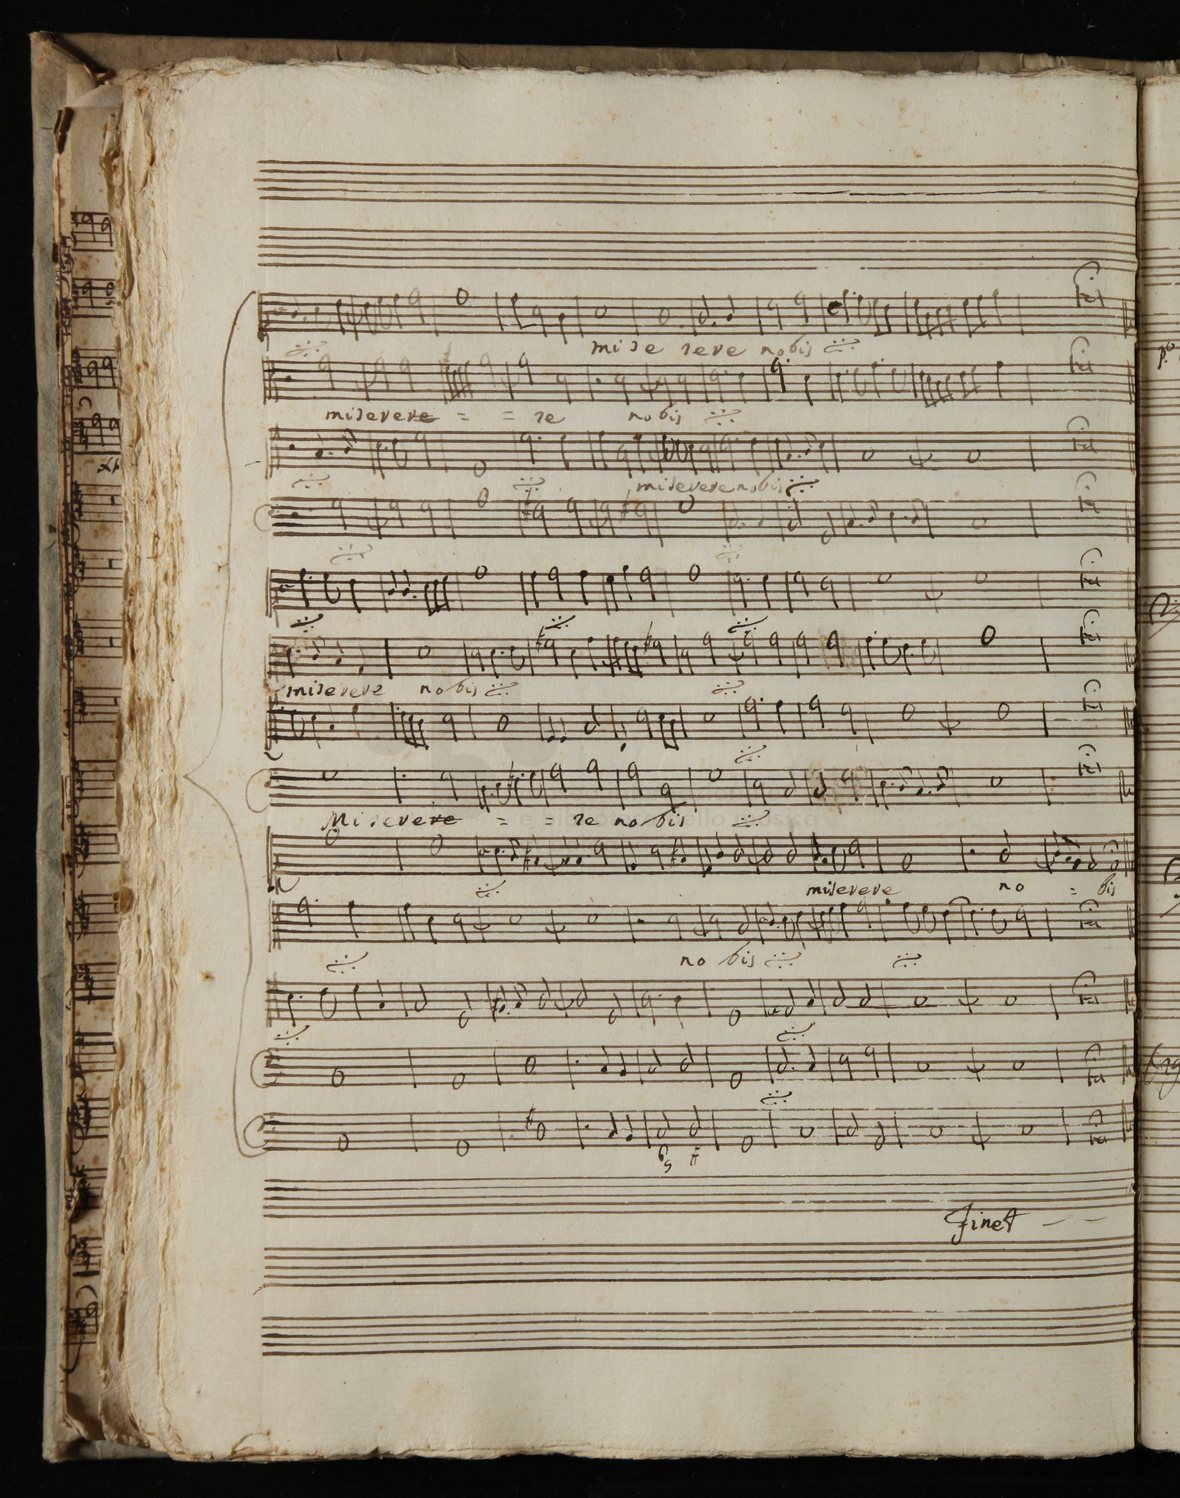 misere rere nobis
miserere = = re nobis
miserere nobis
miserere nobis
Miserere = = re nobis
miserere no = bis
no bis
6 5 #
Finet